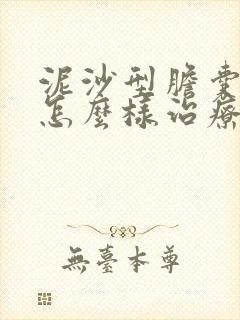 泥沙型膽囊
怎麼樣治療
無臺本尊